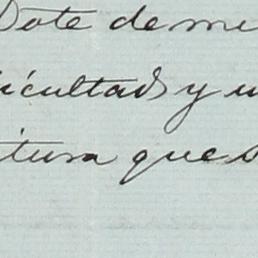 Dote de mi
icultads y u
itura que s